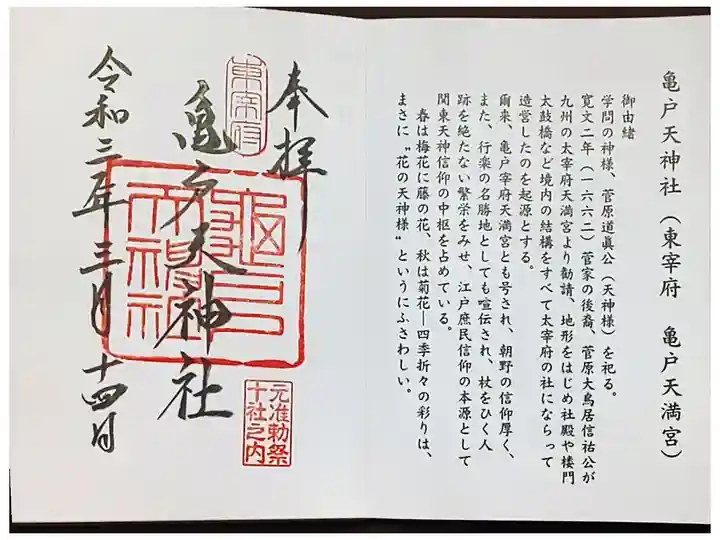 亀戸天神社（東宰府　亀戸天満宮）
御由緒
学問の神様、菅原道眞公（天神様）を祀る。
寛文二年（一六六二）菅家の後裔、菅原大鳥居信祐公が
九州の太宰府天満宮より勧請、地形をはじめ社殿や楼門
太鼓橋など境内の結構をすべて太宰府の社にならって
造営したのを起源とする。
爾来、亀戸宰府天満宮とも号され、朝野の信仰厚く、
また、行楽の名勝地としても喧伝され、杖をひく人
跡を絶たない繁栄をみせ、江戸庶民信仰の本源として
関東天神信仰の中枢を占めている。
春は梅花に藤の花、秋は菊花―四季折々の彩りは、
まさに〝花の天神様〟というにふさわしい。
奉拝
東宰府
亀戸天神社
亀戸
天神社
元准勅祭
十社之内
令和三年三月十四日